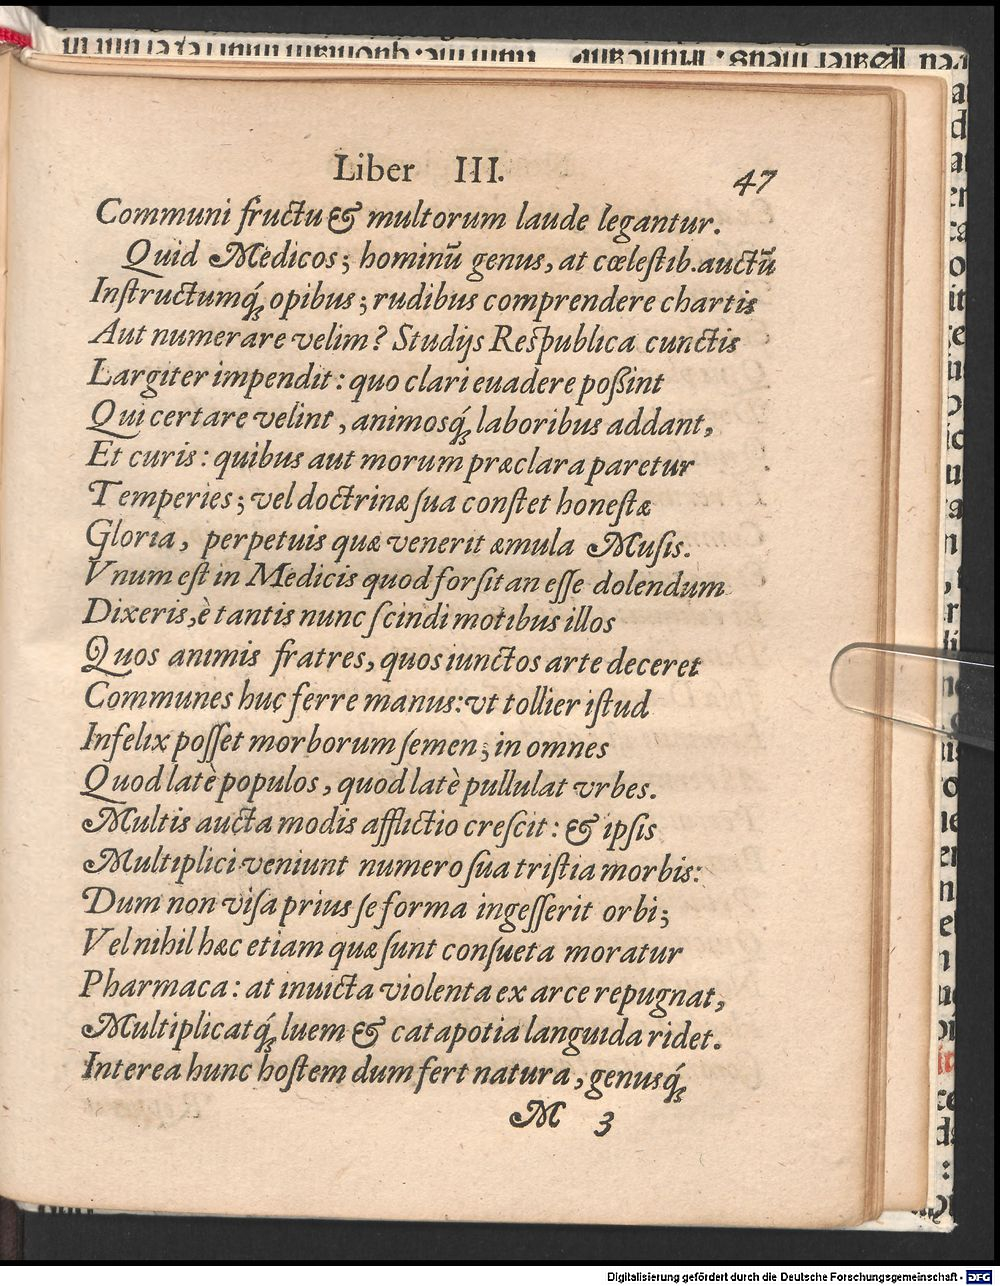 Liber III. 47
Communi fructu & multorum laude legantur.
Quid Medicos; hominū genus, at cœlestib. auctū
Instructumq́ꝫ opibus; rudibus comprendere chartis
Aut numerare velim? Studijs Respublica cunctis
Largiter impendit: quo clari euadere poßint
Qui certare velint, animosq́ꝫ laboribus addant,
Et curis: quibus aut morum præclara paretur
Temperies; vel doctrinæ sua constet honestæ
Gloria, perpetuis quæ venerit æmula Musis.
Vnum est in Medicis quod forsitan esse dolendum
Dixeris, è tantis nunc scindi motibus illos
Quos animis fratres, quos iunctos arte deceret
Communes huc ferre manus: vt tollier istud
Infelix posset morborum semen; in omnes
Quod latè populos, quod latè pullulat vrbes.
Multis aucta modis afflictio crescit: & ipsis
Multiplici veniunt numero sua tristia morbis:
Dum non visa prius se forma ingesserit orbi;
Vel nihil hæc etiam quæ sunt consueta moratur
Pharmaca: at inuicta violenta ex arce repugnat,
Multiplicatq́ꝫ luem & catapotia languida ridet.
Interea hunc hostem dum fert natura, genusq́ꝫ
M 3
Digitalisierung gefördert durch die Deutsche Forschungsgemeinschaft - DFG